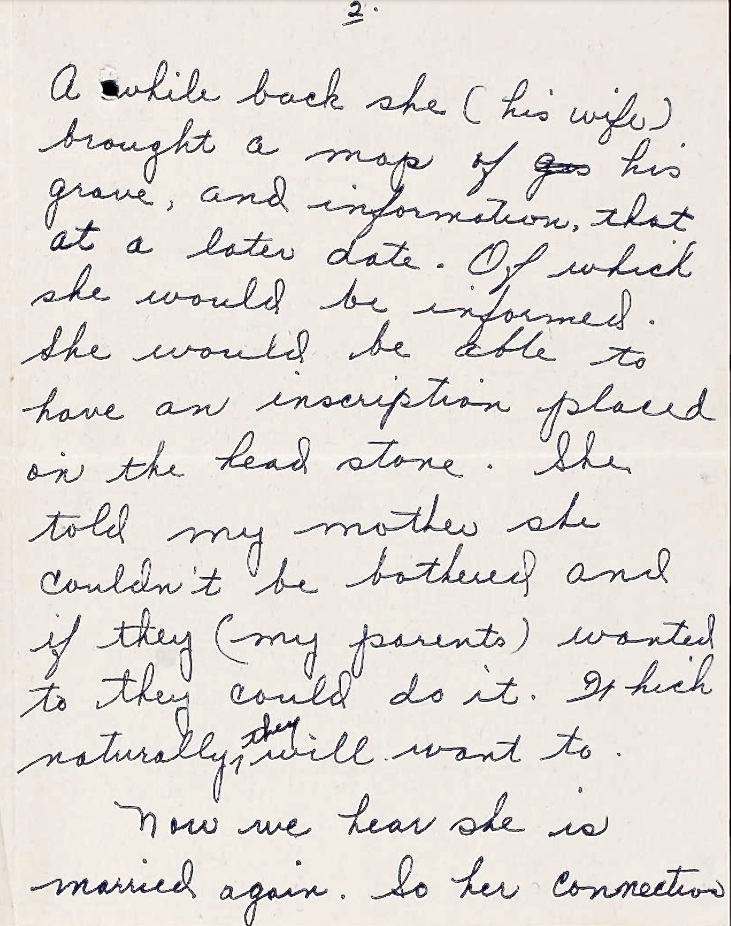 2.
A while back she (his wife)
brought a map of gos his
grave, and information, that
at a later date. Of which
she would be informed.
She would be able to
have an inscription placed
on the head stone. She
told my mother she
couldn't be bothered and
if they (my parents) wanted
to they could do it. Which
naturally, they will want to.
Now we hear she is
married again. So her connection